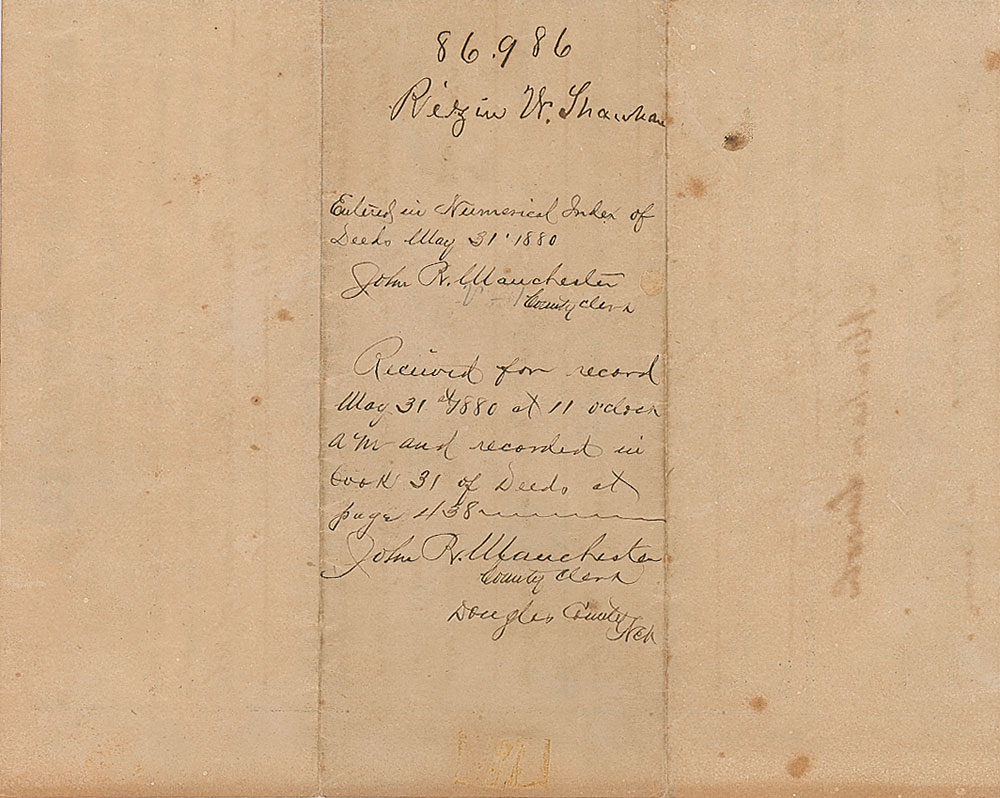 86.986
Rezin W. Shawhan
Entered in Numerical Index of
Deeds May 31st 1880
John R. Manchester
County Clerk
Received for record
May 31st 1880 at 11 o'clock
a m and recorded in
book 31 of Deeds at
page 438
John R. Manchester
County Clerk
Douglas County
Neb